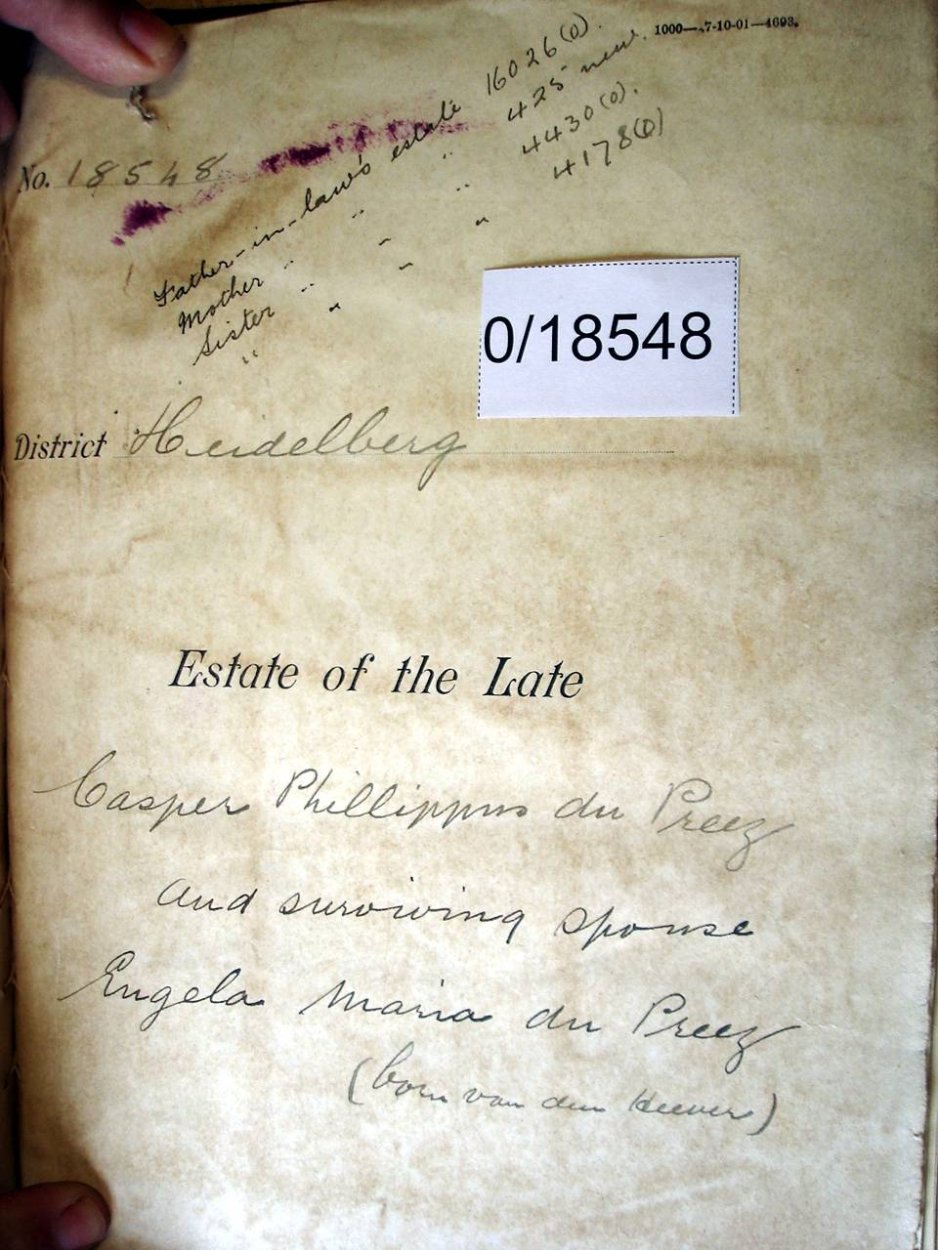 1000—.7-10-01—4693.
No. 18548
Father-in-law's estate 16026(0).
Mother " " " 425 new.
Sister " " " 4430(0).
" " " " 4178(0)
0/18548
District Heidelberg
Estate of the Late
Casper Phillippus du Preez
and surviving spouse
Engela Maria du Preez
(born van den Heever)